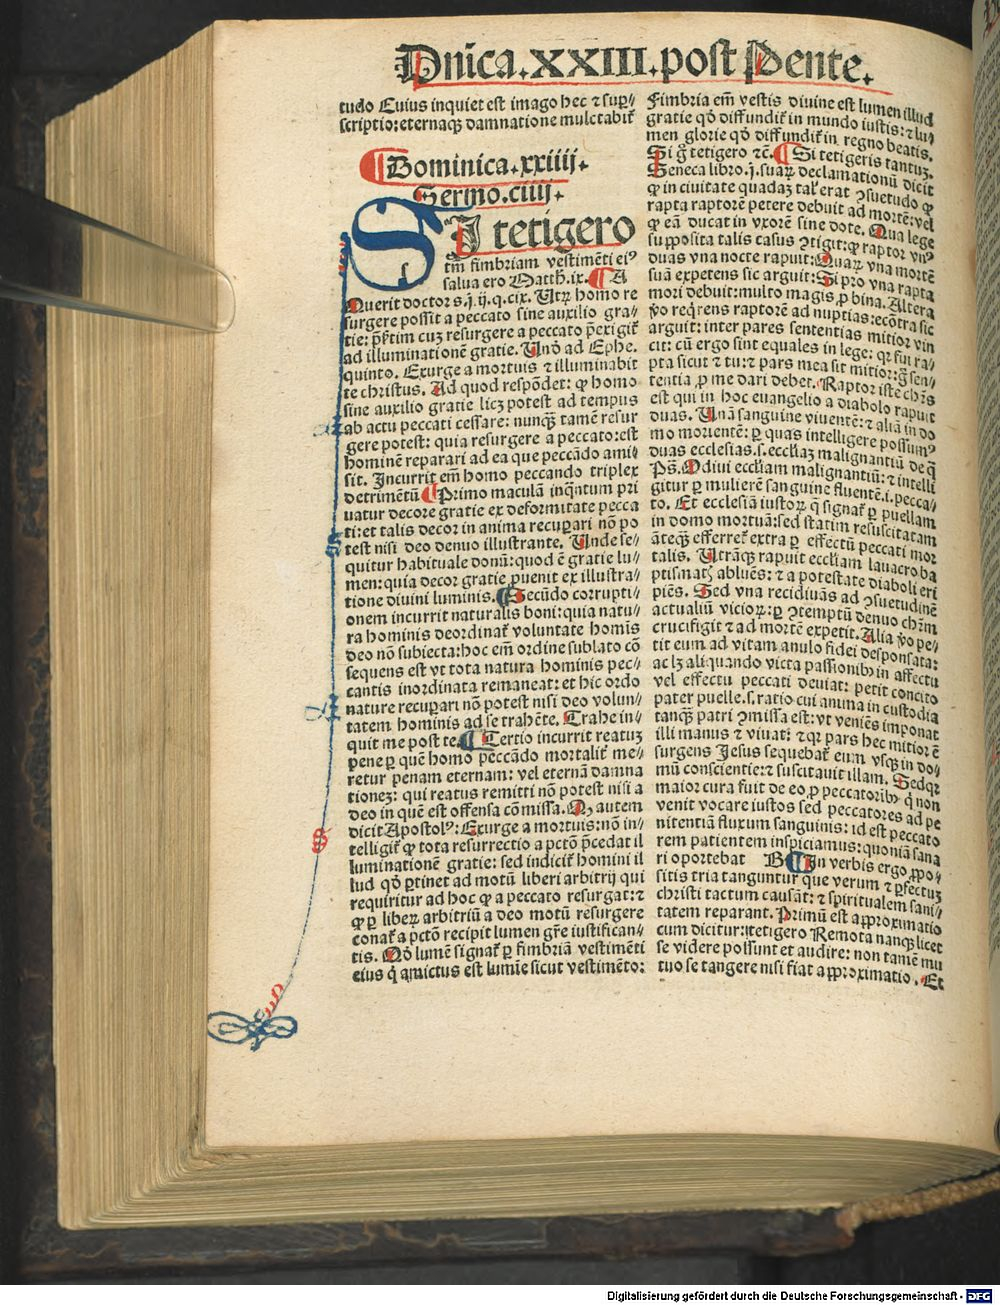 Dn̄ica.XXIII.post Pente.
tudo Cuius inquiet est imago hec ⁊ suꝑ//
scriptio:eternaqꝫ damnatione mulctabit᷑
¶Dominica.xxiiij.
Sermo.ciiij.
SI tetigero
tm̄ fimbriam vestimēti eiꝰ
salua ero Matth.ix.¶A
Querit doctor s.j.ij.q.cix. Vtrꝫ homo re
surgere possit a peccato sine auxilio gra//
tie: p̄s̄tim cuꝫ resurgere a peccato p̄exigit᷑
ad illuminationē gratie. Vn̄ ad Ephe.
quinto. Exurge a mortuis ⁊ illuminabit
te christus. Ad quod respōdet: ꝙ homo
sine auxilio gratie licꝫ potest ad tempus
ab actu peccati cessare: nunqꝫ̄ tamē resur
gere potest: quia resurgere a peccato:est
hominē reparari ad ea que peccādo ami//
sit. Incurrit em̄ homo peccando triplex
detrimētū ¶Primo maculā inqͣntum pri
uatur decore gratie ex deformitate pecca
ti:et talis decor in anima recuꝑari nō po
test nisi deo denuo illustrante. Unde se//
quitur habituale donū:quod ē gratie lu//
men:quia decor gratie ꝓuenit ex illustra//
tione diuini luminis.¶Secūdo corrupti//
onem incurrit naturalis boni:quia natu//
ra hominis deordinat᷑ voluntate homīs
deo nō subiecta:hoc em̄ ordine sublato cō
sequens est vt tota natura hominis pec//
cantis inordinata remaneat: et hic ordo
nature recuꝑari nō potest nisi deo volun//
tatem hominis ad se trahēte. Trahe in//
quit me post te.¶Tertio incurrit reatuꝫ
pene ꝑ quē homo peccādo mortalit᷑ me//
retur penam eternam: vel eternā damna
tioneꝫ: qui reatus remitti nō potest nisi a
deo in quē est offensa cōmissa. Qꝫ autem
dicit Apostolꝰ: Exurge a mortuis:nō in//
telligit᷑ ꝙ tota resurrectio a pctō p̄cedat il
luminationē gratie: sed indicit᷑ homini il
lud qd̄ ꝑtinet ad motū liberi arbitrij qui
requiritur ad hoc ꝙ a peccato resurgat:⁊
ꝙ ꝑ liberꝫ arbitriū a deo motū resurgere
conat᷑ a pctō recipit lumen gr̄e iustifican//
tis. Qd̄ lumē signat᷑ ꝑ fimbriā vestimēti
eius q̇ amictus est lumīe sicut vestimēto:
Fimbria em̄ vestis diuine est lumen illud
gratie qd̄ diffundit᷑ in mundo iustis:⁊ lu//
men glorie qd̄ diffundit᷑ in regno beatis.
Si g̊ tetigero ⁊c̄.¶Si tetigeris tantuꝫ.
Seneca libro.j.suaꝝ declamationū dicit
ꝙ in ciuitate quadaꝫ tal' erat ꝯsuetudo ꝙ
rapta raptorē petere debuit ad mortē:vel
ꝙ eā ducat in vxorē sine dote. Qua lege
supposita talis casus ꝯtigit:ꝙ raptor vnꝰ
duas vna nocte rapuit:Quaꝝ vna mortē
suā expetens sic arguit:Si pro vna rapta
mori debuit:multo magis ꝓ bina. Altera
v̊o req̇rens raptorē ad nuptias:ecōtra sic
arguit: inter pares sententias mitior vin
cit: cū ergo sint equales in lege: qꝛ fui ra//
pta sicut ⁊ tu:⁊ pars mea sit mitior:g̊ sen//
tentia ꝓ me dari debet. Raptor iste chr̄s
est qui in hoc euangelio a diabolo rapuit
duas. Unā sanguine viuentē:⁊ aliā in do
mo morientē: ꝑ quas intelligere possumꝰ
duas ecclesias.s.eccl'iaꝫ malignantiū de q̄
Ps̄. Odiui eccl'iam malignantiū: ⁊ intelli
gitur ꝑ mulierē sanguine fluentē.i.pecca//
to. Et ecclesiā iustoꝝ q̄ signat᷑ ꝑ puellam
in domo mortuā:sed statim resuscitatam
āteqꝫ̄ efferret᷑ extra ꝑ effectū peccati mor
talis. Utrāqꝫ rapuit eccl'iam lauacro ba
ptismatꝭ abluēs: ⁊ a potestate diaboli eri
piēs. Sed vna recidiuās ad ꝯsuetudinē
actualiū vicioꝝ: ꝑ ꝯtemptū denuo chr̄m
crucifigit ⁊ ad mortē expetit. Alia v̊o pe//
tit eum ad vitam anulo fidei desponsata:
ac lꝫ aliquando victa passionibꝰ in affectu
vel effectu peccati deuiat: petit concito
pater puelle.s.ratio cui anima in custodia
tanqꝫ̄ patri ꝯmissa est: vt veniēs imponat
illi manus ⁊ viuat: ⁊ qꝛ pars hec mitior ē
surgens Jesus sequebat᷑ eum vsqꝫ in do//
mū conscientie:⁊ suscitauit illam. Sed qꝛ
maior cura fuit de eo ꝓ peccatoribꝰ q̇ non
venit vocare iustos sed peccatores ad pe
nitentiā fluxum sanguinis: id est peccato
rem patientem inspiciamus: quoniā sana
ri oportebat B¶In verbis ergo ꝓpo//
sitis tria tanguntur que verum ⁊ ꝑfectuꝫ
christi tactum causāt: ⁊ spiritualem sani//
tatem reparant. Primū est approximatio
cum dicitur:tetigero Remota nanqꝫ licet
se videre possunt et audire: non tamē mu
tuo se tangere nisi fiat approximatio. Et
Digitalisierung gefördert durch die Deutsche Forschungsgemeinschaft - DFG